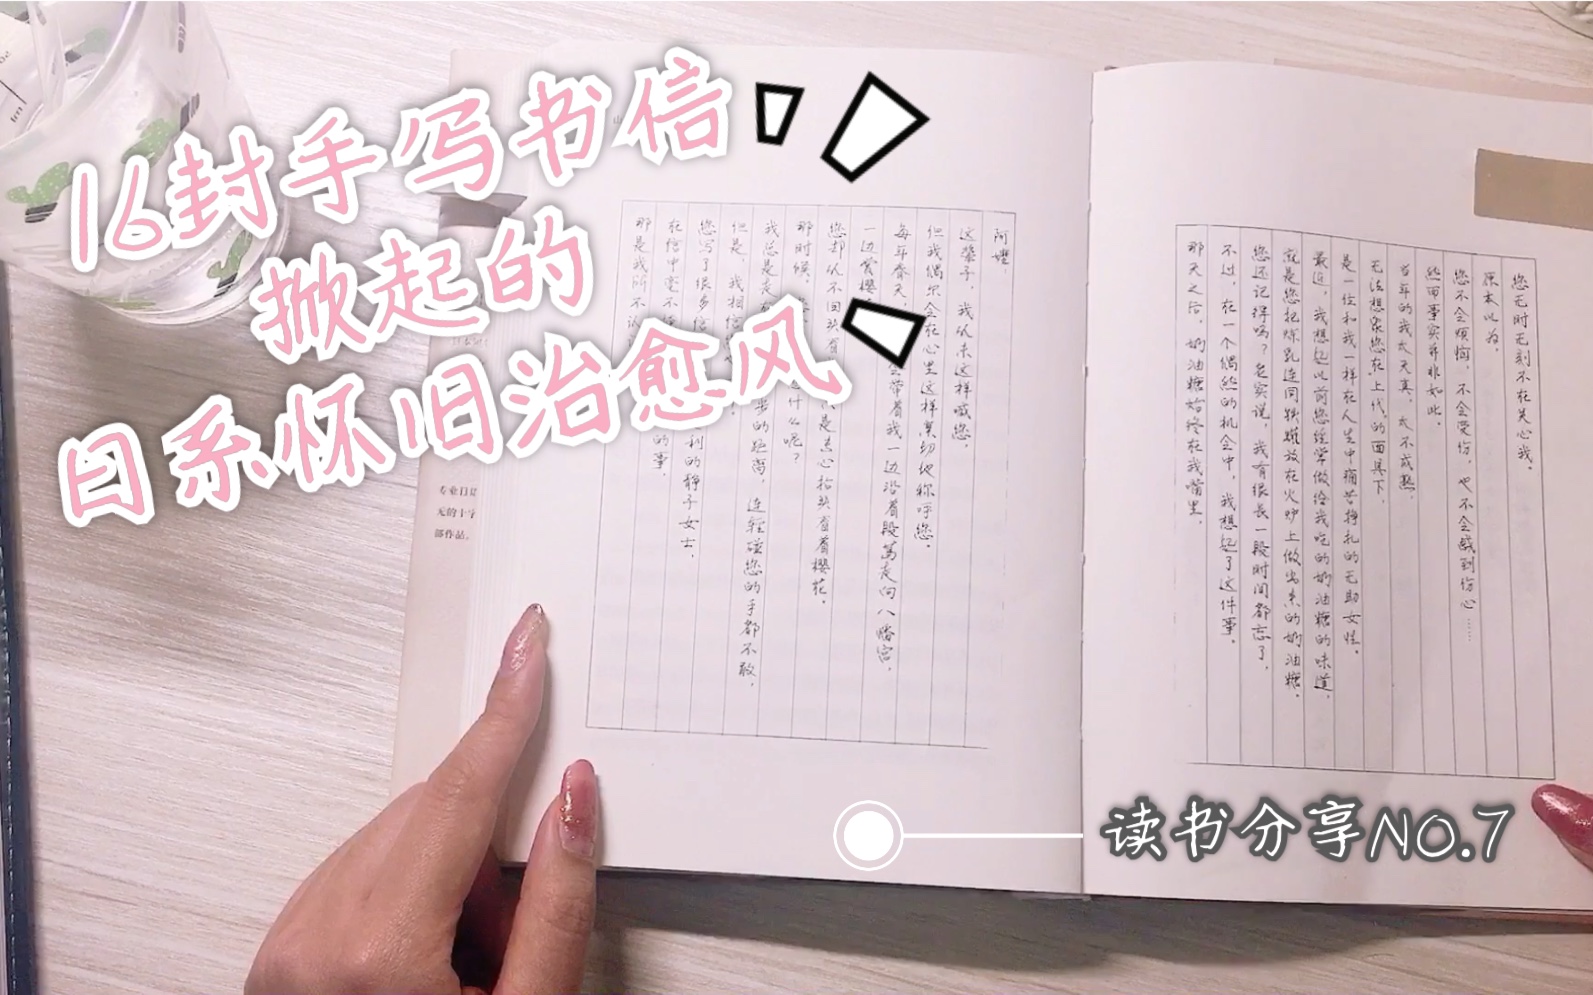 16封手写书信
掀起的
日系怀旧治愈风
阿嬷，
这辈子，我从未这样喊您，
但我偶尔会在心里这样亲切地称呼您。
每年春天 会带着我一边沿着段葛走向八幡宫，
一边赏樱
您却从不回头看 是专心抬头看着樱花。
那时候， 什么呢？
我总是走在 步的距离，连轻碰您的手都不敢。
但是，我相信
您写了很多信 利的静子女士，
在信中毫不
那是我所不认 的事。
您无时无刻不在关心我。
原本以为，
您不会烦恼，不会受伤，也不会感到伤心……
然而事实并非如此。
当年的我太天真，太不成熟，
无法想象您在上代的面具下，
是一位和我一样在人生中痛苦挣扎的无助女性。
最近，我想起以前您经常做给我吃的奶油糖的味道，
就是您把炼乳连同铁罐放在火炉上做出来的奶油糖。
您还记得吗？老实说，我有很长一段时间都忘了，
不过，在一个偶然的机会中，我想起了这件事。
那天之后，奶油糖始终在我嘴里。
专业日语
无的十字
部作品。
读书分享NO.7